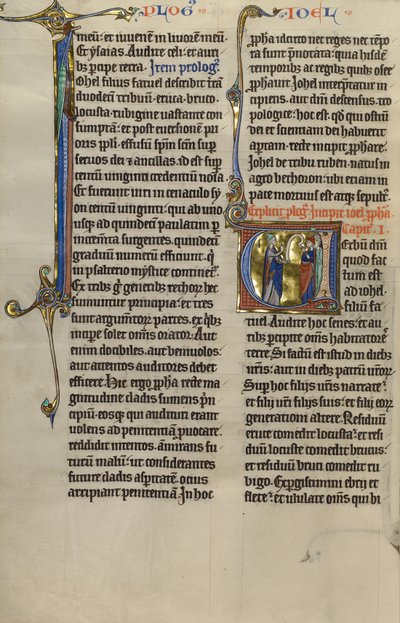 PLOGꝰ
IOEL
meū: et iuuenem in liuorē meū.
Et ysaias. Audite celi: et auri
bꝫ ꝑcipe terra. Item prologꝰ.
Iohel filius fatuel describit trā
duodecim tribuum: eruca: bruco:
locusta: rubigine uastante con
sumptā: et post euersionē p̄o
ris ppli: effusum sp̄m scm̄ sup
seruos dei et ancillas. id est sup
centum uiginti credentium noīa.
Et fuerunt uiri in cenaculo syon
centum uiginti: qui ab uno
usqꝫ ad quindecim paulatim ꝑ
incrementa surgentes. quindecim
graduum numerū efficiunt. qui
in psalterio mystice continentur.
Ex tribꝫ generibꝫ rethores
sumuntur principia: et tres
sunt argumentorum partes. ex qibꝫ
incipere solet omīs orator. Aut
enim dociles: aut beniuolos:
aut attentos auditores debet
efficere. Hic ergo ppha recte ma
gnitudine cladis sumens prin
cipium: eos qui audituri erant
uolens ad penitentiā puocare.
reddidit intentos. amirans fu
turum malū: ut considerantes
future cladis aspitatē: ocius
arripiant penitentiam. In hoc
ppha idcirco nec reges nec tēpo
ra sunt ꝑnotata: quia hisdem
temporibꝫ ac regibꝫ quibꝫ osee
pphauit. Iohel interptatur in
cipiens. aut dn̄m descensus. tro
pologice: hoc est. quod qui ostium
dei et scientiam dei habuerit
aptam: recte incipit ppharē.
Iohel de tribu ruben: natus in
agro bethoron: ubi etiam in
pace mortuus est atqꝫ sepultꝰ.
Explicit plogꝰ. Incipit ioel ppha.
Capitulum .I.
Uerbū dn̄i
quod fac
tum est
ad iohel
filiū fa
tuel. Audite hoc senes: et au
ribꝫ ꝑcipite omīs habitatores
terre. Si factū est istud in diebꝫ
uris: aut in diebꝫ patrū uroꝝ.
Sup hoc filijs uris narrate:
et filij uri filijs suis: et filij eoꝝ
generationi altere. Residuū
eruce comedit locusta: et resi
duū locuste comedit brucus:
et residuū bruci comedit ru
bigo. Expgiscimini ebrij et
flete: et ululate omīs qui bi